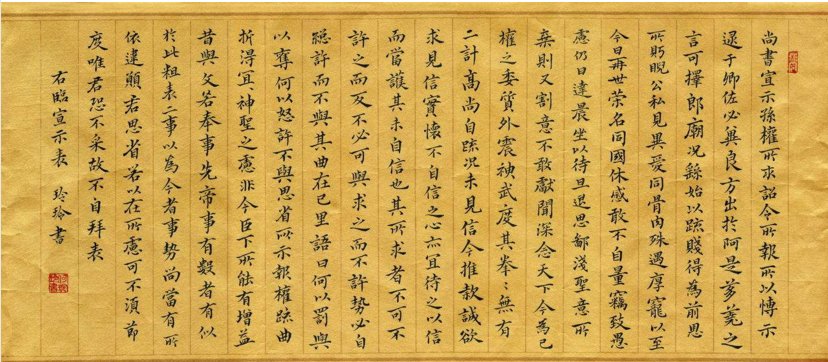 尚書宣示孫權所求詔令所報所以博示
逮于卿佐必冀良方出於阿是芻蕘之
言可擇郎廟況繇始以疏賤得為前恩
所眄睨公私見異愛同骨肉殊遇厚寵以至
今日再世榮名同國休感敢不自量竊致愚
慮仍日達晨坐以待旦退思鄙淺聖意所
棄則又割意不敢獻聞深念天下今為已
權之委質外震神武度其拳〻無有
二計高尚自疏況未見信今推款誠欲
求見信實懷不自信之心亦宜待之以信
而當護其未自信也其所求者不可不
許之而反不必可與求之而不許勢必自
絕許而不與其曲在己里語曰何以罰與
以奪何以怒許不與思省所示報權疏曲
折得宜神聖之慮非今臣下所能有增益
昔與文若奉事先帝事有數者有似
於此粗表二事以為今者事勢尚當有所
依違願君思省若以在所慮可不須節
度唯君恐不采故不自拜表
右臨宣示表 玲玲書